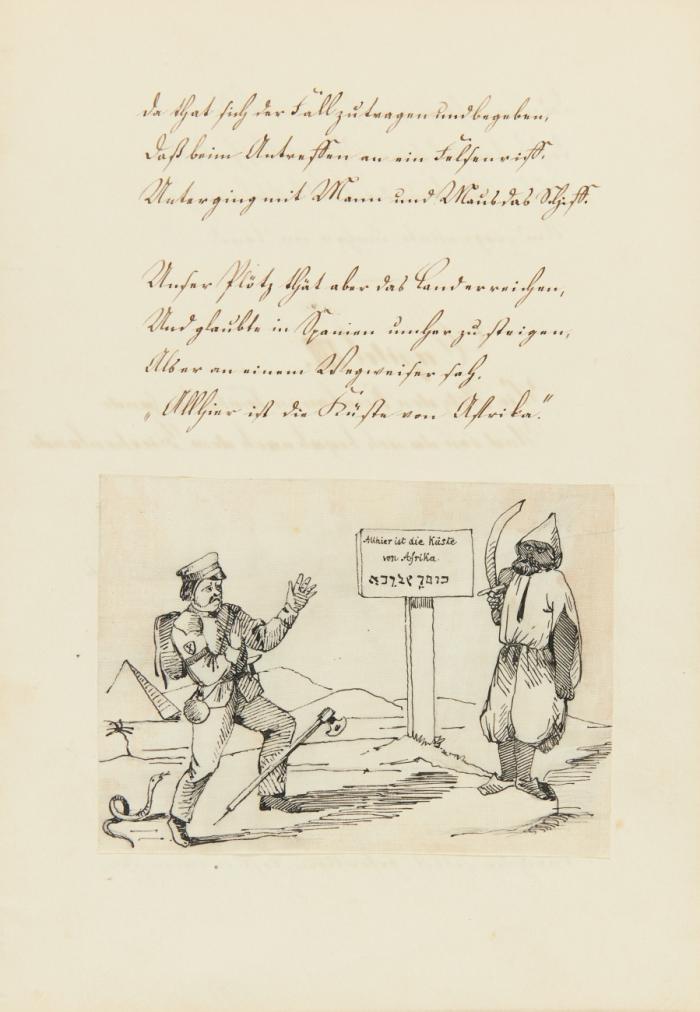 da that sich der Fall zutragen und begeben,
Daß beim Antreffen an ein Felsenriff.
Unterging mit Mann und Maus das Schiff.
Unser Plötz thät aber das Land erreichen,
Und glaubte in Spanien umher zu steigen,
Als er an einem Wegweiser sah.
„Allhier ist die Küste von Afrika."
Allhier ist die Küste
von Afrika.